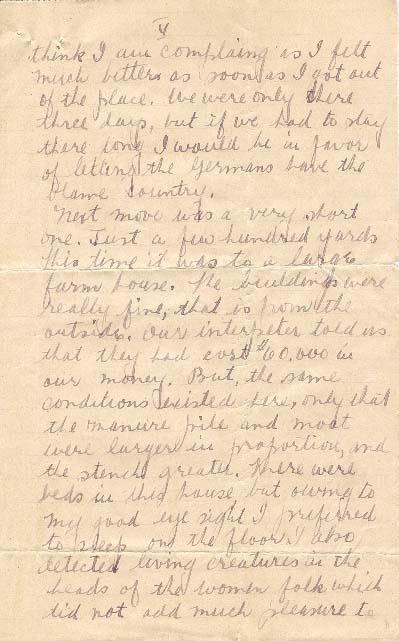 V
think I am complaing as I felt
much better as soon as I got out
of the place. We were only there
three days, but if we had to stay
there long I would be in favor
of letting the Germans have the
blame country.
Next move was a very short
one. Just a few hundred yards
this time it was to a large
farm house. The buildings were
really fine, that is from the
outside. Our interpeter told us
that they had cost $60.000 in
our money. But, the same
conditions existed here, only that
the manure pile and moat
were larger in proportion, and
the stench greater. There were
beds in this house, but owing to
my good eye sight I preferred
to sleep on the floor. I also
detected living creatures in the
heads of the women folk which
did not add much pleasure to